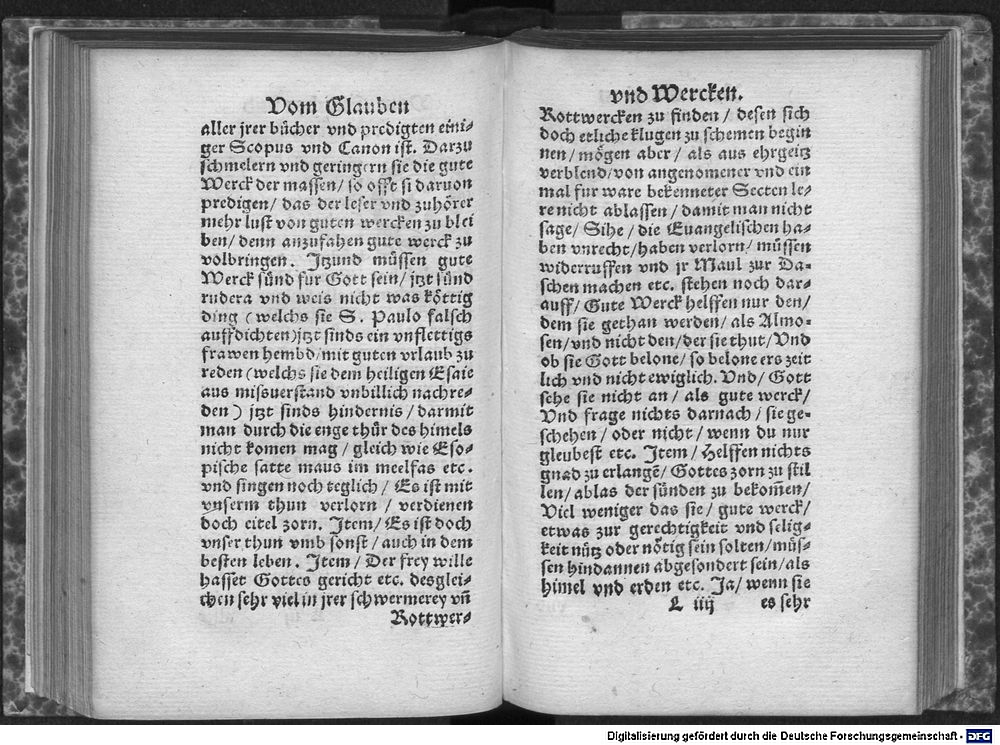 Vom Glauben
aller jrer bücher vnd predigten eini-
ger Scopus vnd Canon ist. Darzu
schmelern vnd geringern sie die gute
Werck der massen/ so offt si daruon
predigen/ das der leser vnd zuhörer
mehr lust von guten wercken zu blei
ben/ denn anzufahen gute werck zu
volbringen. Jtzund müssen gute
Werck sünd fur Gott sein/ jtzt sünd
rudera vnd weis nicht was köttig
ding (welchs sie S. Paulo falsch
auffdichten) jtzt sinds ein vnflettigs
frawen hembd/ mit guten vrlaub zu
reden (welchs sie dem heiligen Esaie
aus missuerstand vnbillich nachre-
den) jtzt sinds hindernis/ darmit
man durch die enge thür des himels
nicht komen mag/ gleich wie Eso-
pische satte maus im meelfas etc.
vnd singen noch teglich/ Es ist mit
vnserm thun verlorn/ verdienen
doch eitel zorn. Jtem/ Es ist doch
vnser thun vmb sonst/ auch in dem
besten leben. Jtem/ Der frey wille
hasset Gottes gericht etc. desglei-
chen sehr viel in jrer schwermerey vñ
Rottwer-
vnd Wercken.
Rottwercken zu finden/ desen sich
doch etliche klugen zu schemen begin
nen/ mögen aber/ als aus ehrgeitz
verblend/ von angenomener vnd ein
mal fur ware bekenneter Secten le-
re nicht ablassen/ damit man nicht
sage/ Sihe/ die Euangelischen ha-
ben vnrecht/ haben verlorn/ müssen
widerruffen vnd jr Maul zur Da-
schen machen etc. stehen noch dar-
auff/ Gute Werck helffen nur den/
dem sie gethan werden/ als Almo-
sen/ vnd nicht den/ der sie thut/ Vnd
ob sie Gott belone/ so belone ers zeit
lich vnd nicht ewiglich. Vnd/ Gott
sehe sie nicht an/ als gute werck/
Vnd frage nichts darnach/ sie ge-
schehen/ oder nicht/ wenn du nur
gleubest etc. Jtem/ Helffen nichts
gnad zu erlangẽ/ Gottes zorn zu stil
len/ ablas der sünden zu bekom̃en/
Viel weniger das sie/ gute werck/
etwas zur gerechtigkeit vnd selig-
keit nütz oder nötig sein solten/ müs-
sen hindannen abgesondert sein/ als
himel vnd erden etc. Ja/ wenn sie
L iiij es sehr
Digitalisierung gefördert durch die Deutsche Forschungsgemeinschaft - DFG